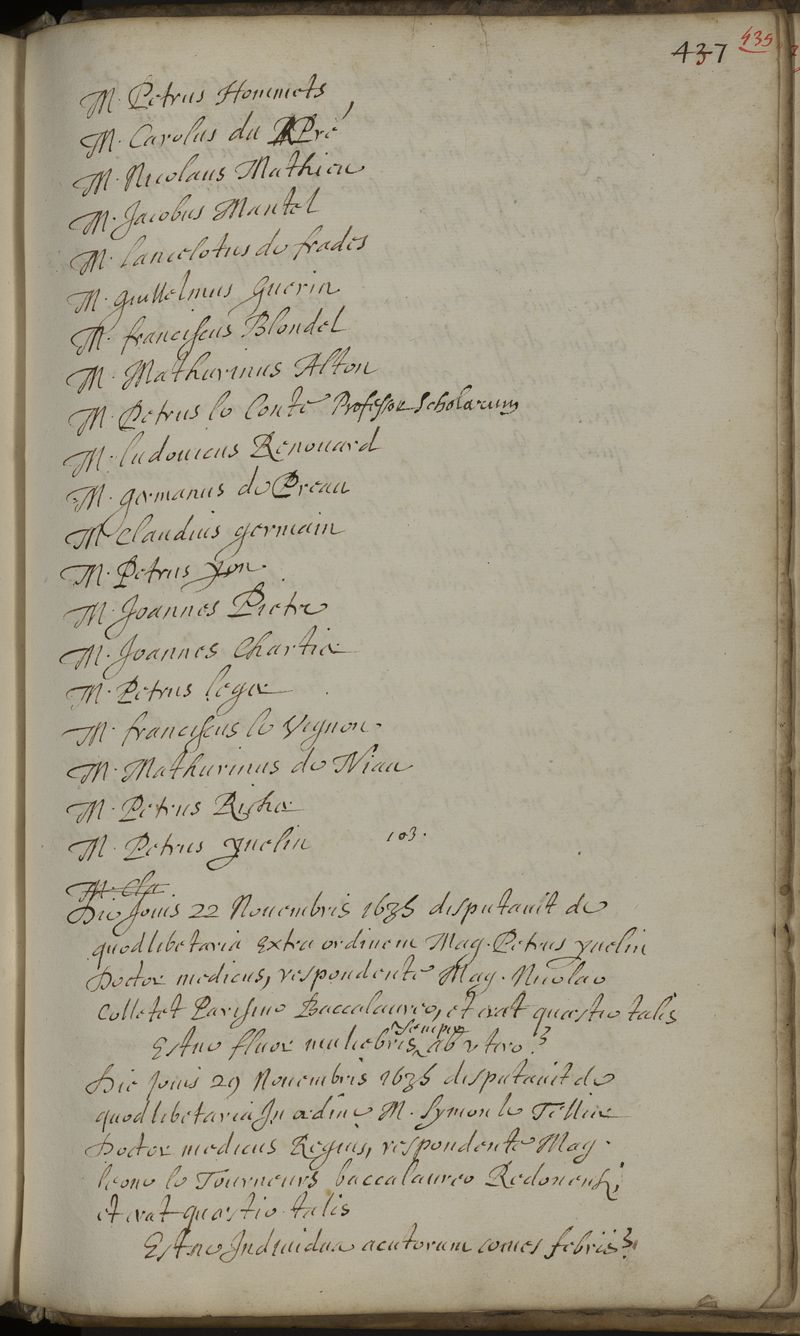 437 435
M. Petrus Hommets
M. Carolus du Pré
M. Nicolaus Mathieu
M. Jacobus Mantel
M. Lancelotus de frades
M. guillelmus guerin
M. franciscus Blondel
M. Mathurinus Alton
M. Petrus le Conte Professor Scholarum
M. ludouicus Renouard
M. germanus de Preau
M Claudius germain
M. Petrus yon.
M. Joannes Pietre
M. Joannes Chartier
M. Petrus leger
M. franciscus le Vignon.
M. Mathurinus de Niau
M. Petrus Richer
M. Petrus yuelin 103.
M. Cla
Die Jouis 22 Nouembris 1635 disputauit de
quodlibetaria extra ordinem Mag. Petrus yuelin
Doctor medicus, respondente Mag. Nicolao
Colletet Parisino Baccalaureo, et erat quæstio talis
Estne fluor muliebris semper ab vtero?
Die Jouis 29 Nouembris 1635 disputauit de
quodlibetaria In ordine M. Symon le Tellier
Doctor medicus Regius, respondente Mag.
leone le Tourneurs baccalaureo Redonensi,
et erat quæstio talis
Estne Indiuidua acutorum comes febris?